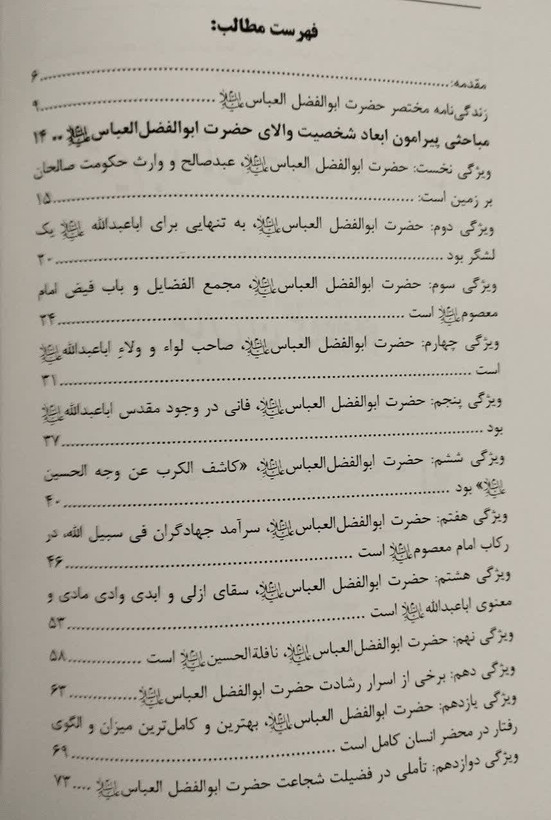 فهرست مطالب:
مقدمه: ........ ۶
زندگی‌نامه مختصر حضرت ابوالفضل العباس علیه‌السلام ........ ۹
مباحثی پیرامون ابعاد شخصیت والای حضرت ابوالفضل‌العباس علیه‌السلام .. ۱۴
ویژگی نخست: حضرت ابوالفضل العباس علیه‌السلام، عبدصالح و وارث حکومت صالحان
بر زمین است: ........ ۱۵
ویژگی دوم: حضرت ابوالفضل العباس علیه‌السلام، به تنهایی برای اباعبدالله علیه‌السلام یک
لشگر بود ........ ۲۰
ویژگی سوم: حضرت ابوالفضل العباس علیه‌السلام، مجمع الفضایل و باب فیض امام
معصوم علیه‌السلام است ........ ۲۴
ویژگی چهارم: حضرت ابوالفضل العباس علیه‌السلام، صاحب لواء و ولاءِ اباعبدالله علیه‌السلام
است ........ ۳۱
ویژگی پنجم: حضرت ابوالفضل العباس علیه‌السلام، فانی در وجود مقدس اباعبدالله علیه‌السلام
بود ........ ۳۷
ویژگی ششم: حضرت ابوالفضل‌العباس علیه‌السلام، «کاشف الکرب عن وجه الحسین
علیه‌السلام» بود ........ ۴۰
ویژگی هفتم: حضرت ابوالفضل‌العباس علیه‌السلام، سرآمد جهادگران فی سبیل الله، در
رکاب امام معصوم علیه‌السلام است ........ ۴۶
ویژگی هشتم: حضرت ابوالفضل العباس علیه‌السلام، سقای ازلی و ابدی وادی مادی و
معنوی اباعبدالله علیه‌السلام است ........ ۵۳
ویژگی نهم: حضرت ابوالفضل‌العباس علیه‌السلام، نافلة‌الحسین علیه‌السلام است ........ ۵۸
ویژگی دهم: برخی از اسرار رشادت حضرت ابوالفضل العباس علیه‌السلام ........ ۶۳
ویژگی یازدهم: حضرت ابوالفضل العباس علیه‌السلام، بهترین و کامل‌ترین میزان و الگوی
رفتار در محضر انسان کامل است ........ ۶۹
ویژگی دوازدهم: تأملی در فضیلت شجاعت حضرت ابوالفضل العباس علیه‌السلام .... ۷۳